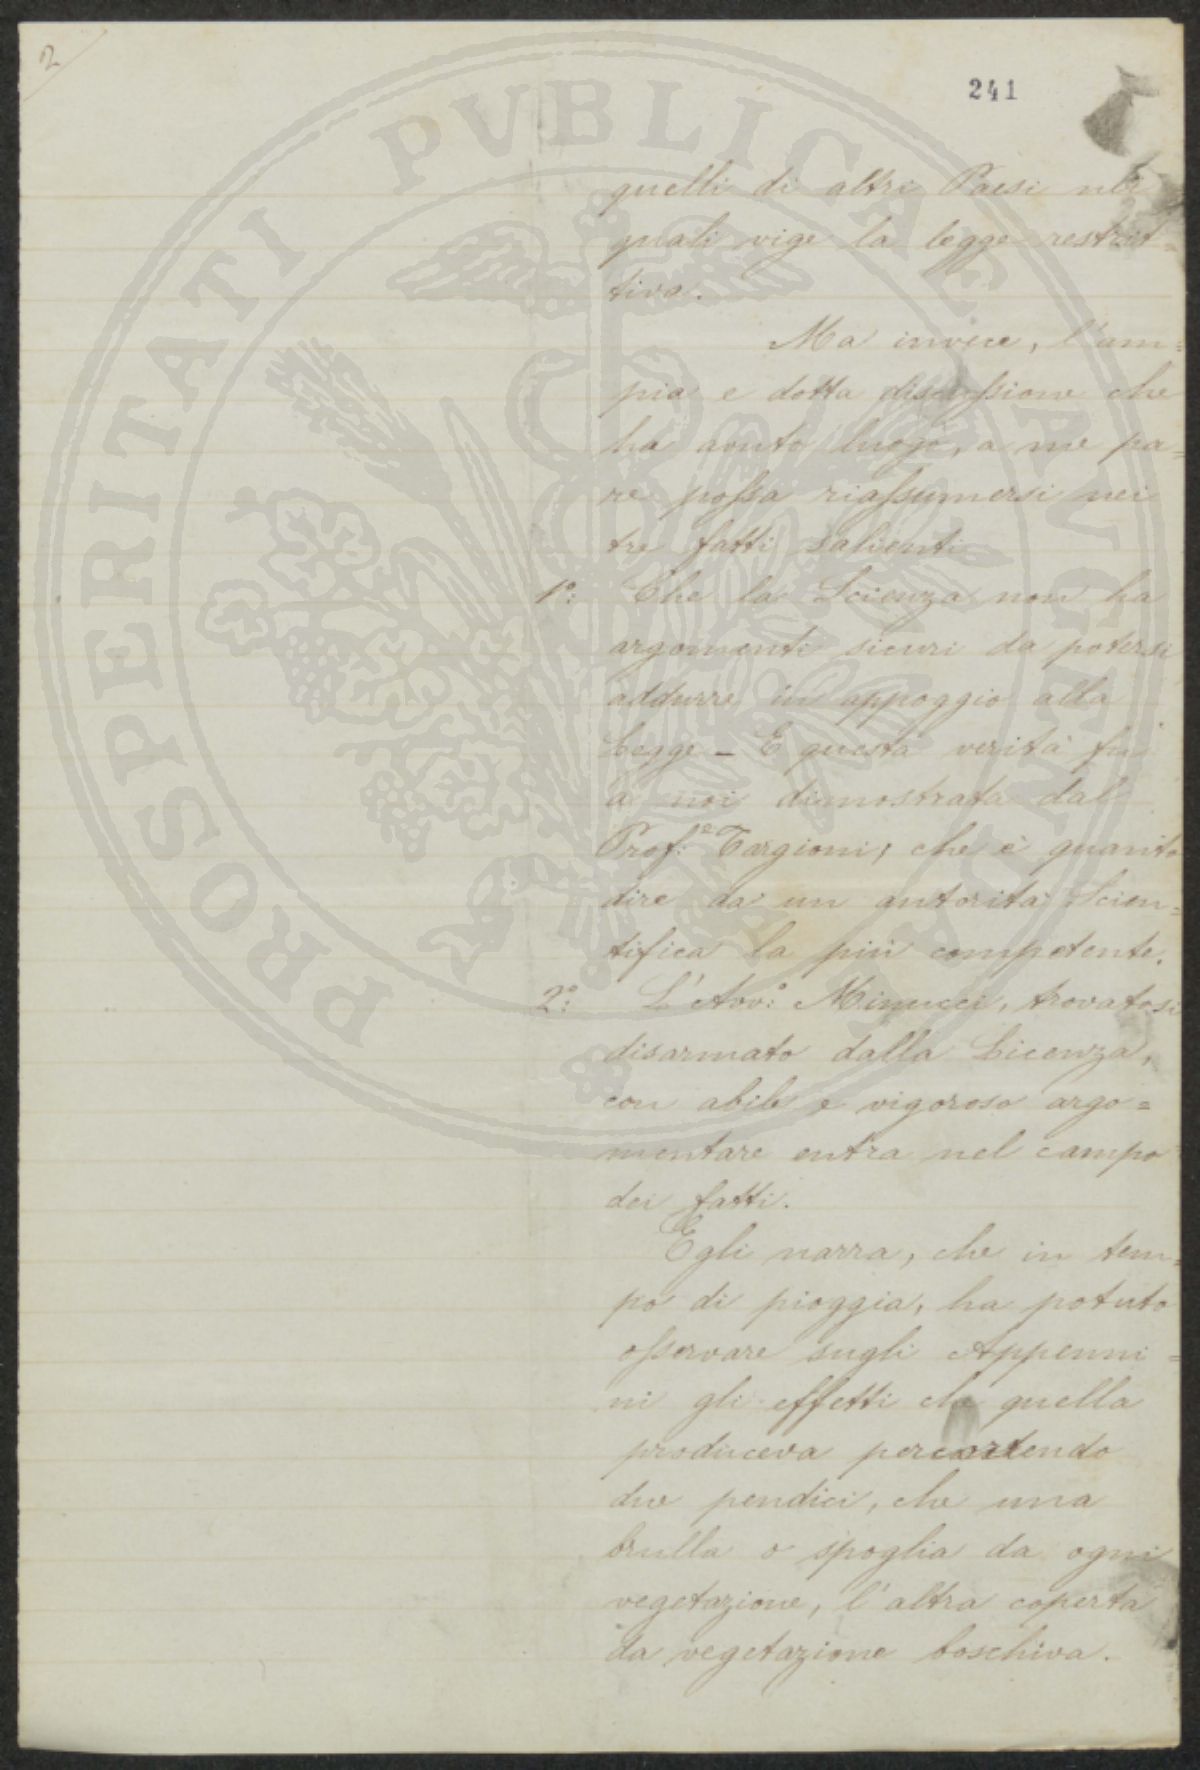 2
241
quelli di altri Paesi nei
quali vige la legge restrit=
tiva.
Ma invece, l'am=
pia e dotta discussione che
ha avuto luogo, a me pa=
re possa riassumersi nei
tre fatti salienti
1º: Che la Scienza non ha
argomenti sicuri da potersi
addurre in appoggio alla
Legge - E questa verità fu
a noi dimostrata dal
Prof:re Targioni; che è quanto
dire da un autorità Scien=
tifica la più competente.
2º: L'Avvº: Minucci, trovatosi
disarmato dalla Licenza,
con abile e vigoroso argo=
mentare entra nel campo
dei fatti.
Egli narra, che in tem=
po di pioggia, ha potuto
osservare sugli Appenni=
ni gli effetti che quella
produceva percortendo
due pendici, che una
brulla o spoglia da ogni
vegetazione, l'altra coperta
da vegetazione boschiva.
PROSPERITATI PVBLICAE AVGENDAE